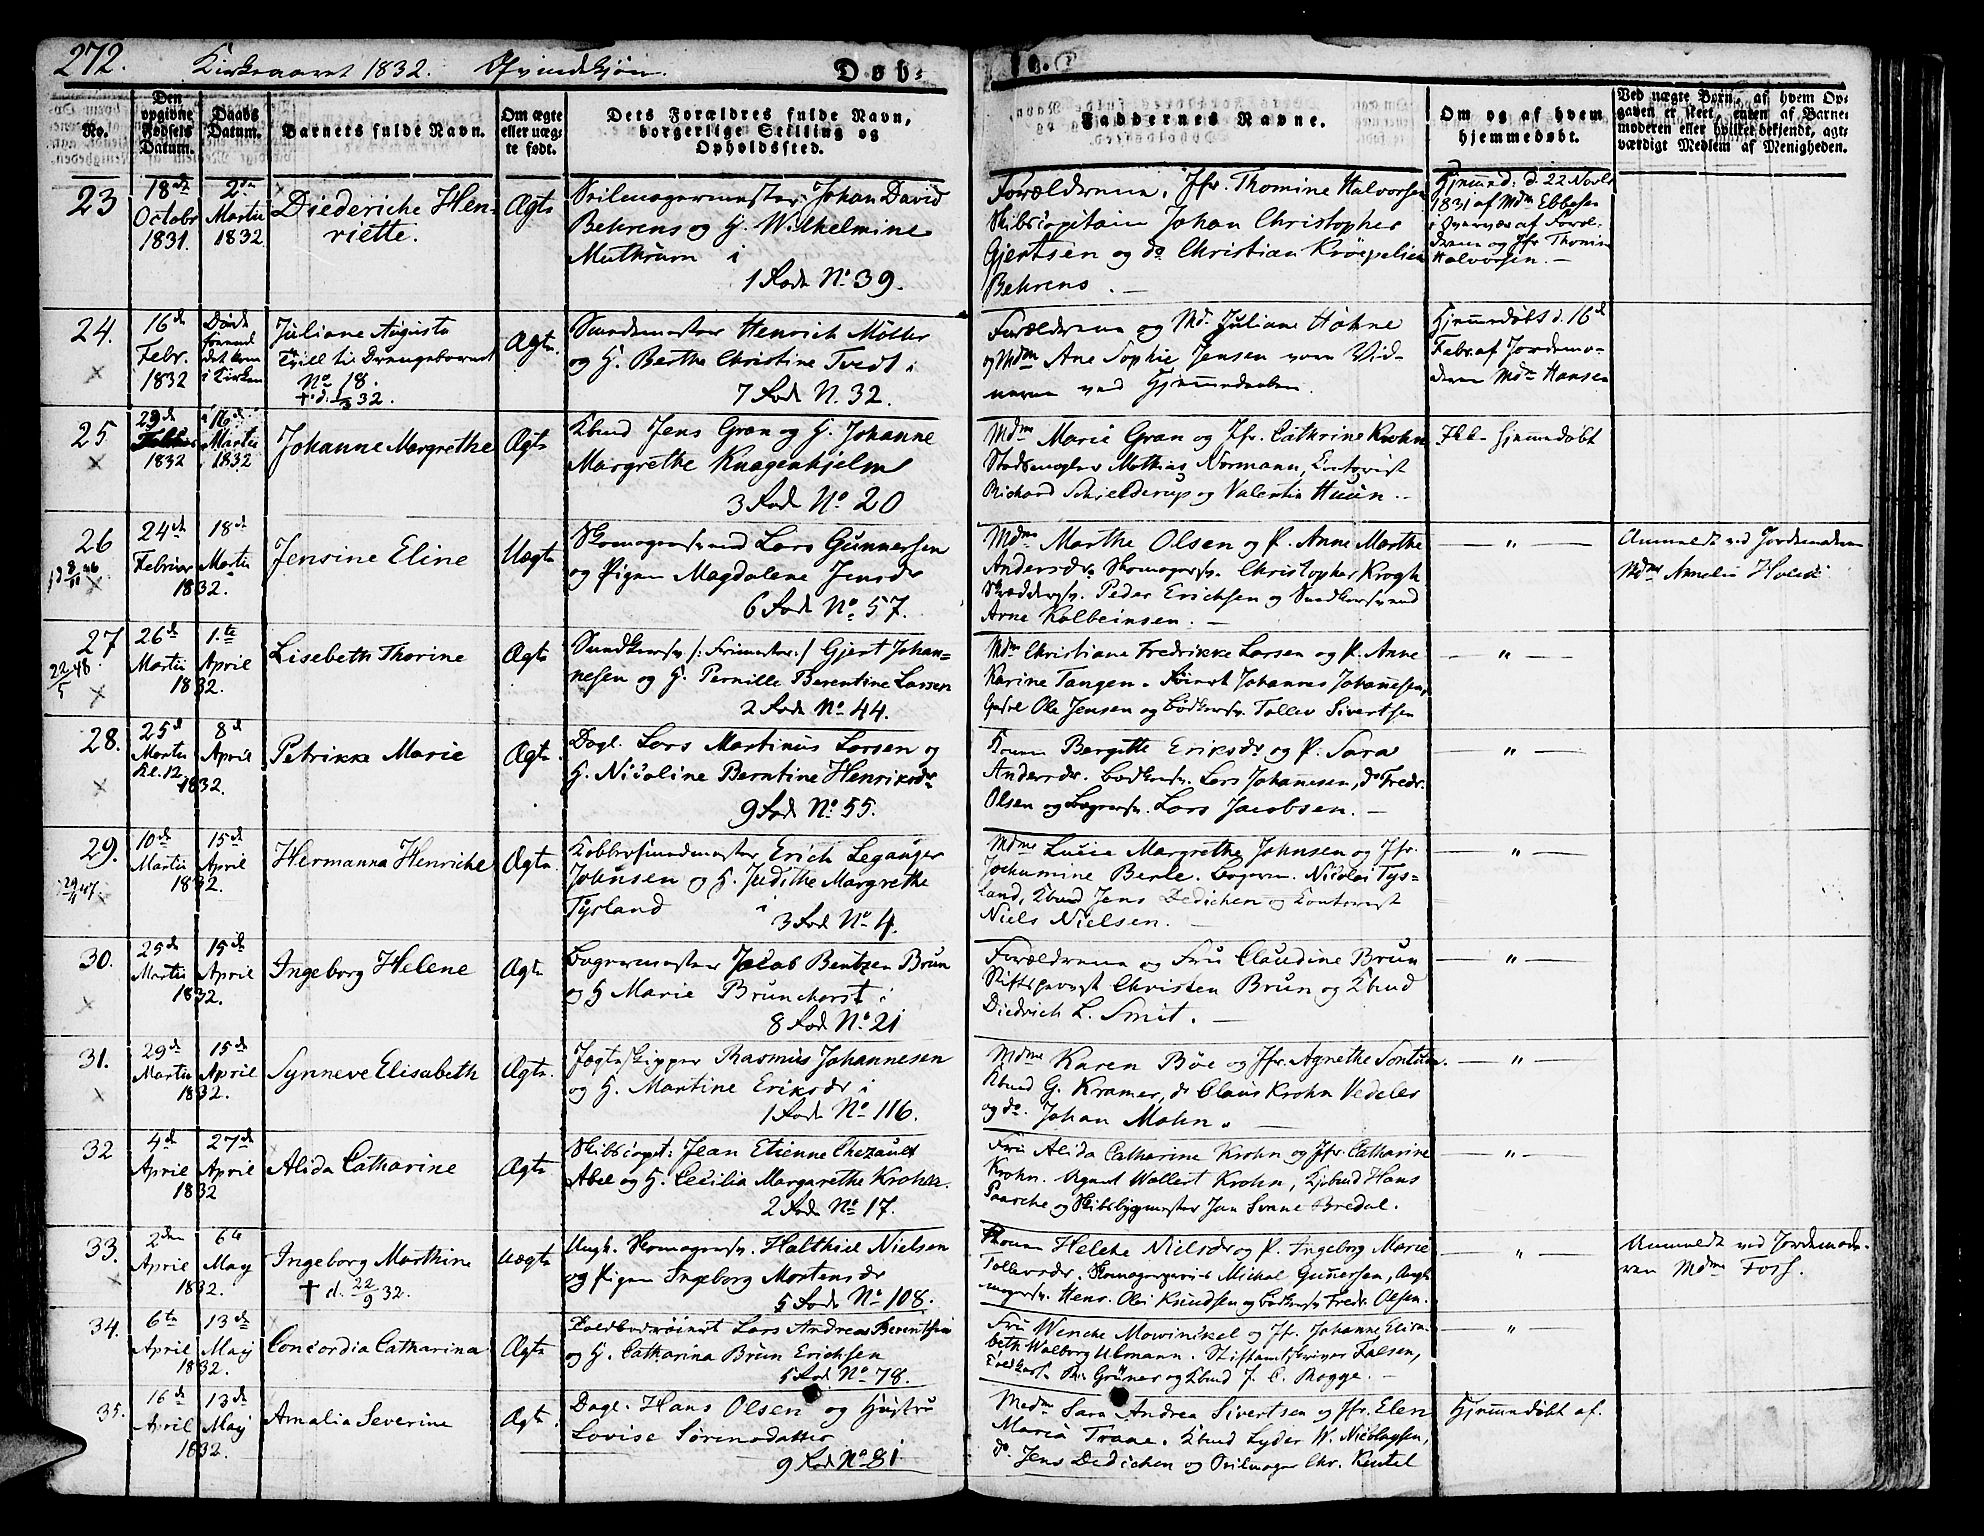 272. Kirkeaaret 1832. Qvindekjøn. Døb-
te.
No.
Den opgivne Fødsels Datum.
Daabs Datum.
Barnets fulde Navn.
Om ægte eller uægte født.
Dets Forældres fulde Navn, borgerlige Stilling og Opholdssted.
Faddernes Navne.
Om og af hvem hjemmedøbt.
Ved uægte Børn, af hvem Opgaven er skeet, enten af Barnemoderen eller hvilket bekjendt, agtværdigt Medlem af Menigheden.
23 18de Octobr 1831. 2den Martii 1832 Diederiche Henriette. Ægte
Seilmagermester Johan David
Behrens og H. Wilhelmine
Muthrum i
1 Rode No. 39.
Forældrene, Jfr. Thomine Halvorsen
Skibscapitain Johan Christopher
Gjertsen og do Christian Kröepelien
Behrens. —
Hjemmed: d. 22 Novbr
1831 af Mdm Ebbesen
i Overvær af Foræl-
drene og Jfr Thomine
Halvorsen. —
24. 16de Febr. 1832 Døde forend det kom i Kirken
Juliane Augusta
Tvill. til Drengebarnet
No 18.
† d. 1/3 32.
Ægte.
Smedemester Henrich Möller
og H. Berthe Christine Tvedt i
7 Rode N. 32.
Forældrene og Md. Juliane Höhne
og Mdm Ane Sophie Jensen vare Vid-
nerne ved Hjemmedaaben.
Hjemmedøbt d. 16de
Febr. af Jordemo-
deren Mdm Hansen
25 29de Februar 1832 16de Martii 1832 Johanne Margrethe Ægte
Kbmd Jens Gran og H. Johanne
Margrethe Knagenhjelm
3 Rode No. 20
Mdm Marie Gran og Jfr. Cathrine Krohn
Stadsmægler Mathias Normann, Contorist
Richard Schielderup og Valentin Huun. —
Ikke hjemmedøbt
26 24de Februar 18de Martii 1832. Jensine Eline Uægte
Skomagersvend Lars Gunnersen
og Pigen Magdalene Jensdr
6 Rode No. 57.
Mdm. Marthe Olsen og P. Anne Marthe
Andersdr. Skomagersv. Christopher Krogh
Skræddersv. Peder Erichsen og Smedkersvend
Arne Kolbeinsen. —
— " —
Anmeldt ved Jordemoderen
Mdm Amelie Holck
27 22/5 48. 26de Martii 1.te April 1832. Lisebeth Thorine Ægte
Snedkersv /: Frimester :/ Gjert Johan-
nesen og H. Pernille Berentine Larsen
2 Rode No. 44.
Mdm Christiane Fredrikke Larsen og P. Anne
Karine Tangen. Johannes Johannesen,
Ole Jensen og Bødkersv. Tollev Sivertsen
— " —
28. 25de Martii Kl. 12 8de April 1832. Petrikke Marie Ægte.
Dagl. Lars Martinus Larsen og
H. Nicoline Berntine Henriksdr
9 Rode No. 55.
Konen Bergitte Eriksdr og P. Sara
Andersdr. Bødkersv. Lars Johannesen, do Fredr.
Olsen og Bagersv. Lars Jacobsen. —
" —
29. 29/4 47. 10de Martii 15de April 1832. Hermanna Henriche Ægte.
Kobbersmedmester Erich Leganger
Johnsen og H. Judithe Margrethe
Tysland i 3 Rode No. 4.
Mdme Lucie Margrethe Johnsen og Jfr.
Jochumine Berle. Bagerm. Nicolai Tys-
land, Kbmd Jens Dedichen og Contorist
Niels Nielsen. —
— " —
30. 25de Martii 15de April 1832. Ingeborg Helene Ægte
Bagermester Jacob Bentzen Brun
og H Marie Brunchorst i
8 Rode No. 21
Forældrene og Fru Claudine Brun
Stiftsprovst Christen Brun og Kbmd
Diedrich L. Smit. —
— " —
31. 29de Martii 15de April 1832. Synneve Elisabeth Ægte.
Jægteskipper Rasmus Johannesen
og H. Martine Eriksdr i
1 Rode No 116.
Mdme Karen Böe og Jfr. Agnethe Sontum.
Kbmd G. Kramer, do Claus Krohn Vedeler
og do. Johan Mohn. —
— " —
32 4de April 27de April 1832 Alida Catharine Ægte
Skibscapt: Jean Etienne Chezaulx
Abel og H. Cecilia Margarethe Krohn.
2 Rode No. 17.
Fru Alida Catharine Krohn og Jfr. Catharine
Krohn. Agent Wollert Krohn, Kjøbmd Hans
Paasche og Skibsbygmester Jan Sonne Bredal.
— " —
33. 2den April 6te May 1832. Ingeborg Marthine
† d. 22/9 32.
Uægte
Ungk. Skomagersv. Halthiel Nielsen
og Pigen Ingeborg Mortensdr
5 Rode No. 108.
Konen Helche Nielsdr og P. Ingeborg Marie
Tollevsdr. Michal Gunersen,
Hens. Olai Knudsen og Bødkersv Fredr. Olsen.
— " —
Anmeldt ved Jordemode-
ren Mdme Foss.
34. 6te April 13de May 1832. Concordia Catharina Ægte
Lars Andreas Berentsen
og H. Catharina Brun Erichsen
5 Rode No 78.
Fru Wenche Mowinckel og Jf. Johanne Elisa-
beth Walborg Ulmann. Stiftamtskriver Falsen,
Grüner og Kbmd J. C. Rogge. —
— " —
35. 16de April 13de May 1832. Amalia Severine Ægte.
Dagl. Hans Olsen og Hustru
Lovise Sörensdatter
9 Rode No 81
Madm Sara Andrea Sivertsen og Jfr. Elen
Maria Trane. Kbmd Lyder W. Nicolaysen,
do. Jens Dedichen og Seilmager Chr. Keutel
Hjemmedøbt af.